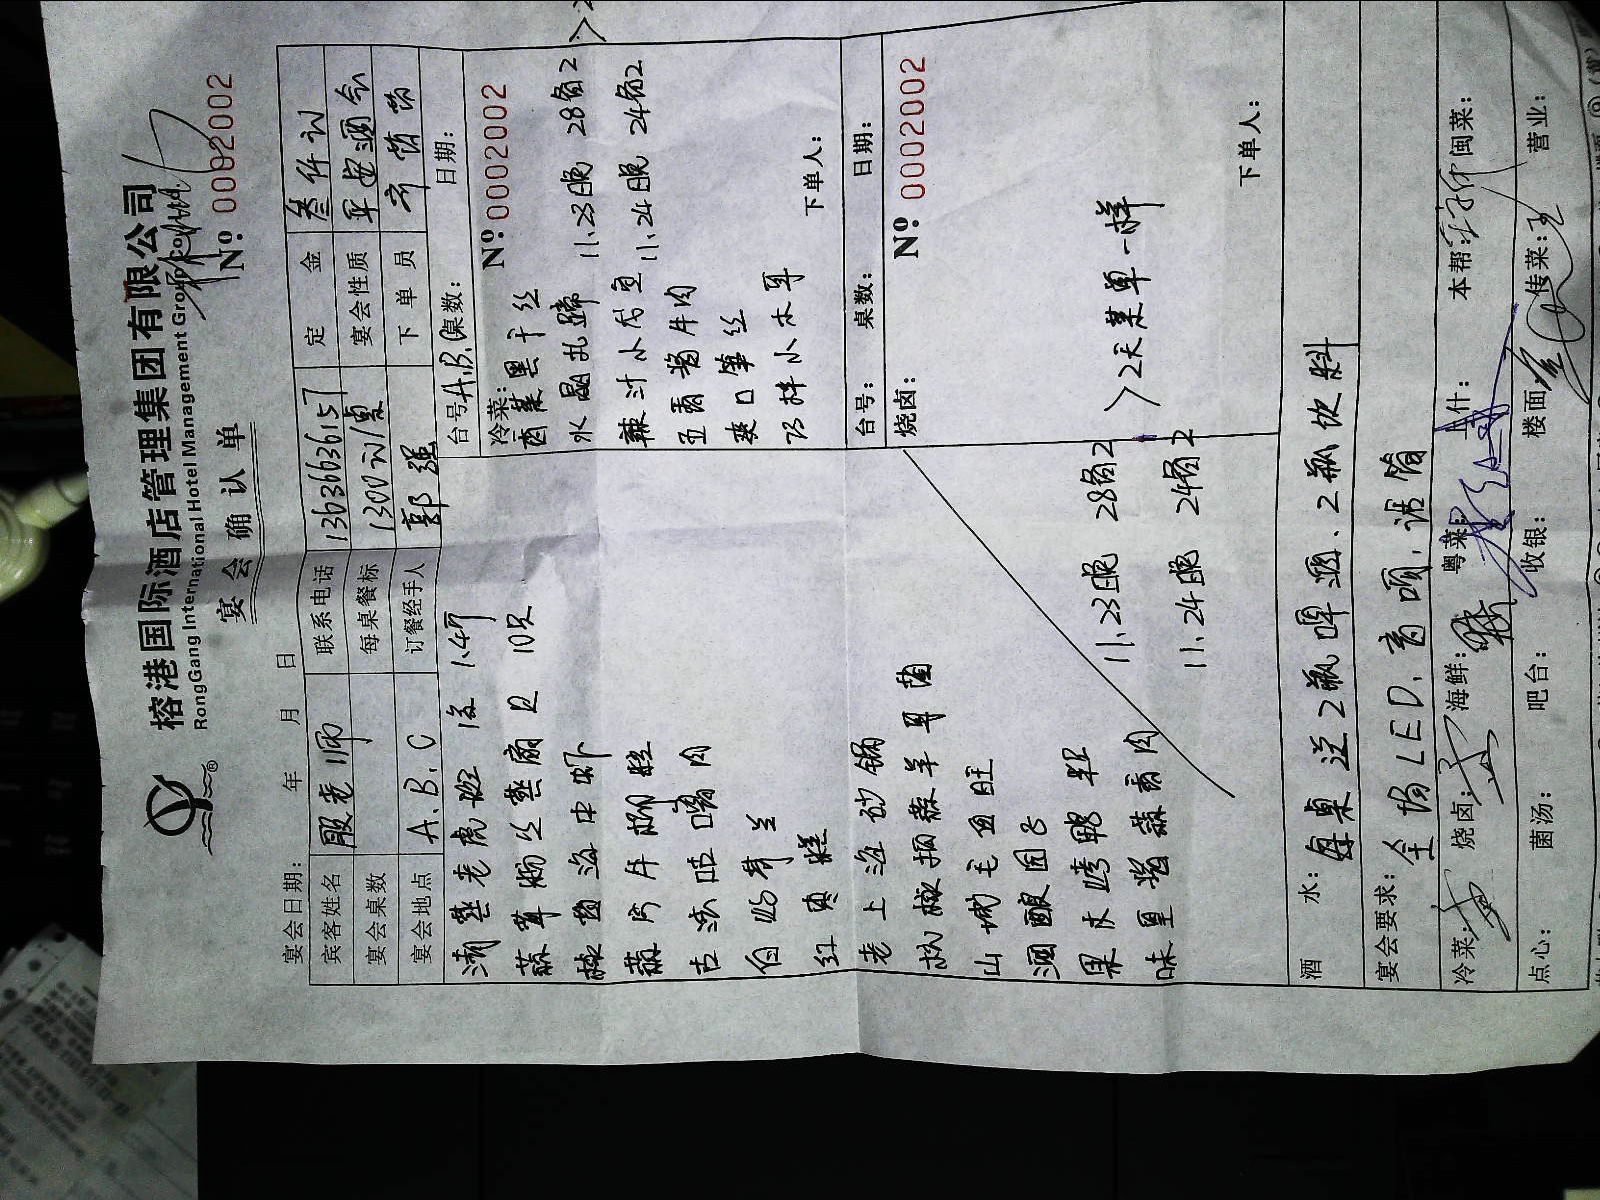 榕港国际酒店管理集团有限公司
RongGang International Hotel Management Group Co., Ltd.
宴会确认单
№ 0002002
宴会日期： 年 月 日
宾客姓名 殷老师 联系电话 13636636157 定金 叁仟元
宴会桌数 每桌餐标 1300元/桌 宴会性质 平安酒会
宴会地点 A.B.C 订餐经手人 郭强 下单员
清蒸老虎斑 1条 1.4斤
蒜茸粉丝蒸扇贝 10只
椒盐海中虾
古法
白灼芥兰
红枣糕
老上海砂锅
山城毛血旺
酒酿圆子
果木烤鸭 半
味里酱蒜香肉
11.23晚 28桌2
11.24晚 24桌2
>2天菜单一样
台号 A.B.C 桌数： 日期：
№ 0002002
冷菜：
西芹黑干丝
水晶扎蹄 11.23晚 28桌2
11.24晚 24桌2
五香酱牛肉
爽口笋丝
巧拌小木耳
下单人：
台号： 桌数： 日期：
烧卤：
№ 0002002
下单人：
酒水： 每桌送2瓶啤酒、2瓶饮料
宴会要求： 全场LED.音响.话筒
冷菜： 烧卤： 海鲜： 粤菜： 上什： 本帮： 闽菜：
点心： 菌汤： 吧台： 收银： 楼面： 传菜： 营业：